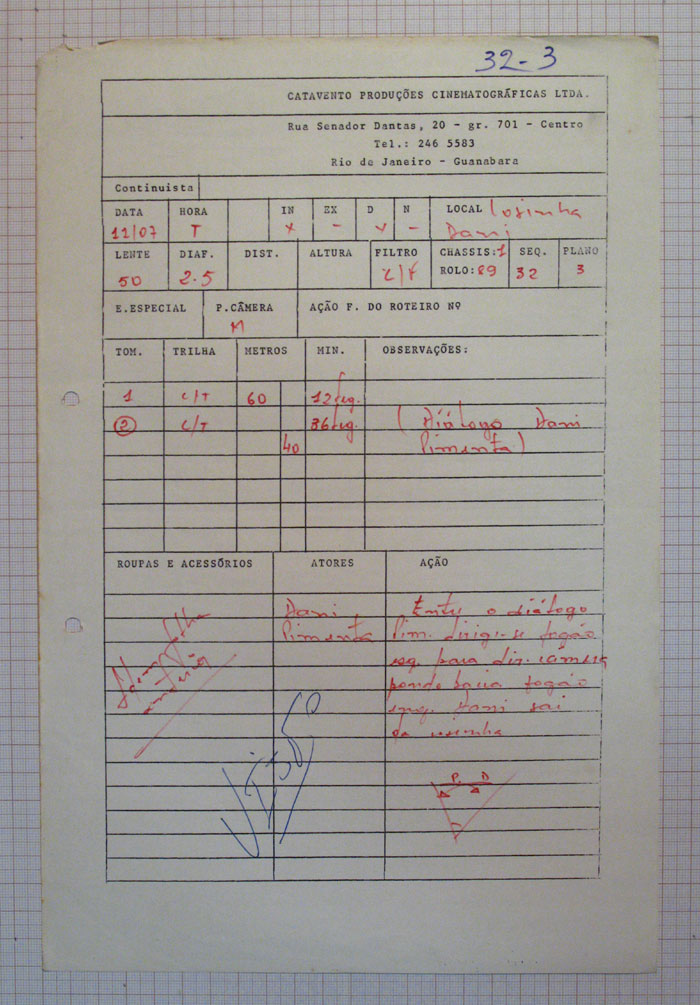 32-3
CATAVENTO PRODUÇÕES CINEMATOGRÁFICAS LTDA.
Rua Senador Dantas, 20 - gr. 701 - Centro
Tel.: 246 5583
Rio de Janeiro - Guanabara
Continuista
DATA HORA IN EX D N LOCAL Cosinha
11/07 T x - x - Dani
LENTE DIAF. DIST. ALTURA FILTRO CHASSIS:1 SEQ. PLANO
50 2.5 C/F ROLO:89 32 3
E.ESPECIAL P.CÂMERA AÇÃO F. DO ROTEIRO Nº
M
TOM. TRILHA METROS MIN. OBSERVAÇÕES:
1 C/T 60 12seg.
2 C/T 36seg. (Diálogo Dani
40 Pimenta)
ROUPAS E ACESSÓRIOS ATORES AÇÃO
Dani, Entre o diálogo
Pimenta Pim. dirige-se fogão
esq. para dir. camera
pondo bacia fogão
enq. Dani sai
da cosinha
P. D